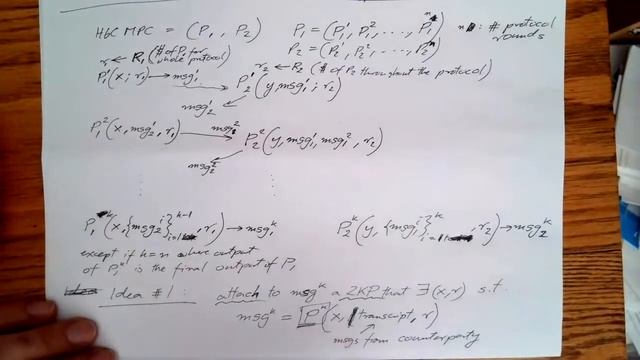 HbC MPC = (P₁, P₂) P₁ = (P₁¹, P₁², ..., P₁ⁿ) n: # protocol rounds
P₂ = (P₂¹, P₂², ..., P₂ⁿ)
r₁ ← R₁ (# of P₁ for whole protocol)
r₂ ← R₂ (# of P₂ throughout the protocol)
P₁¹(x; r₁) → msg₁¹
P₂¹(y, msg₁¹; r₂)
msg₂¹
P₁²(x, msg₂¹, r₁) msg₁²
P₂²(y, msg₁¹, msg₁², r₂)
msg₂²
P₁ᵏ(x, {msg₂ⁱ}ᵢ₌₁ᵏ⁻¹, r₁) → msg₁ᵏ
P₂ᵏ(y, {msg₁ⁱ}ᵢ₌₁ᵏ, r₂) → msg₂ᵏ
except if k=n where output
of P₁ᵏ is the final output of P₁
Idea #1: attach to msgᵏ a ZKP that ∃(x,r) s.t.
msgᵏ = Pᵏ(x, transcript, r)
msgs from counterparty